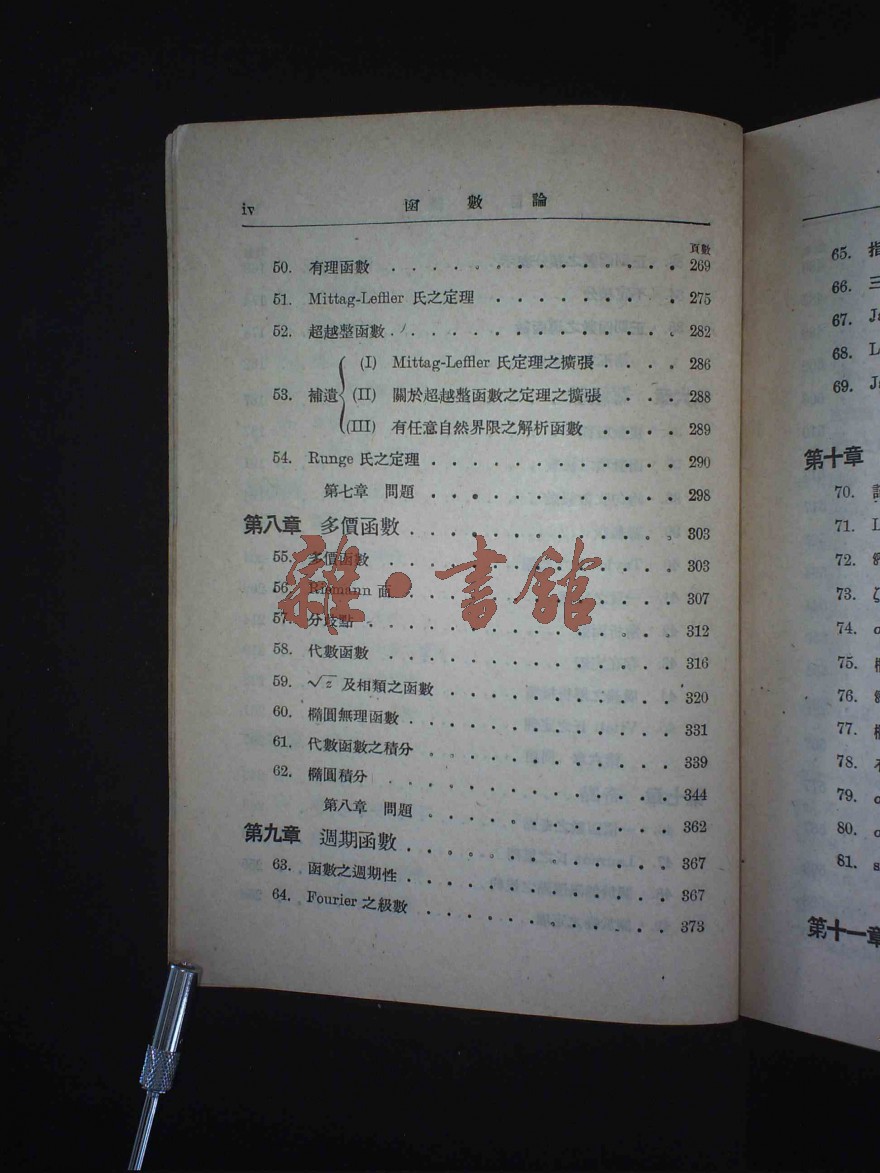 iv 函數論
頁數
50. 有理函數 . . . . . . . . . . . . . . . . 269
51. Mittag-Leffler 氏之定理 . . . . . . . . . . 275
52. 超越整函數 . . . . . . . . . . . . . . . 282
53. 補遺 (I) Mittag-Leffler 氏定理之擴張 . . . . 286
(II) 關於超越整函數之定理之擴張 . . . 288
(III) 有任意自然界限之解析函數 . . . . 289
54. Runge 氏之定理 . . . . . . . . . . . . . 290
第七章 問題 . . . . . . . . . . . . . 298
第八章 多價函數 . . . . . . . . . . . . . . 303
55. 多價函數 . . . . . . . . . . . . . . . . 303
56. Riemann 面 . . . . . . . . . . . . . . . 307
57. 分歧點 . . . . . . . . . . . . . . . . . 312
58. 代數函數 . . . . . . . . . . . . . . . . 316
59. √z 及相類之函數 . . . . . . . . . . . . 320
60. 橢圓無理函數 . . . . . . . . . . . . . . 331
61. 代數函數之積分 . . . . . . . . . . . . . 339
62. 橢圓積分 . . . . . . . . . . . . . . . . 344
第八章 問題 . . . . . . . . . . . . . 362
第九章 週期函數 . . . . . . . . . . . . . . 367
63. 函數之週期性 . . . . . . . . . . . . . . 367
64. Fourier 之級數 . . . . . . . . . . . . . 373
雜·書館
65. 指
66. 三
67. J
68. L
69. J
第十章
70.
71. L
72.
73. ζ
74.
75.
76.
77.
78.
79.
80.
81. s
第十一章